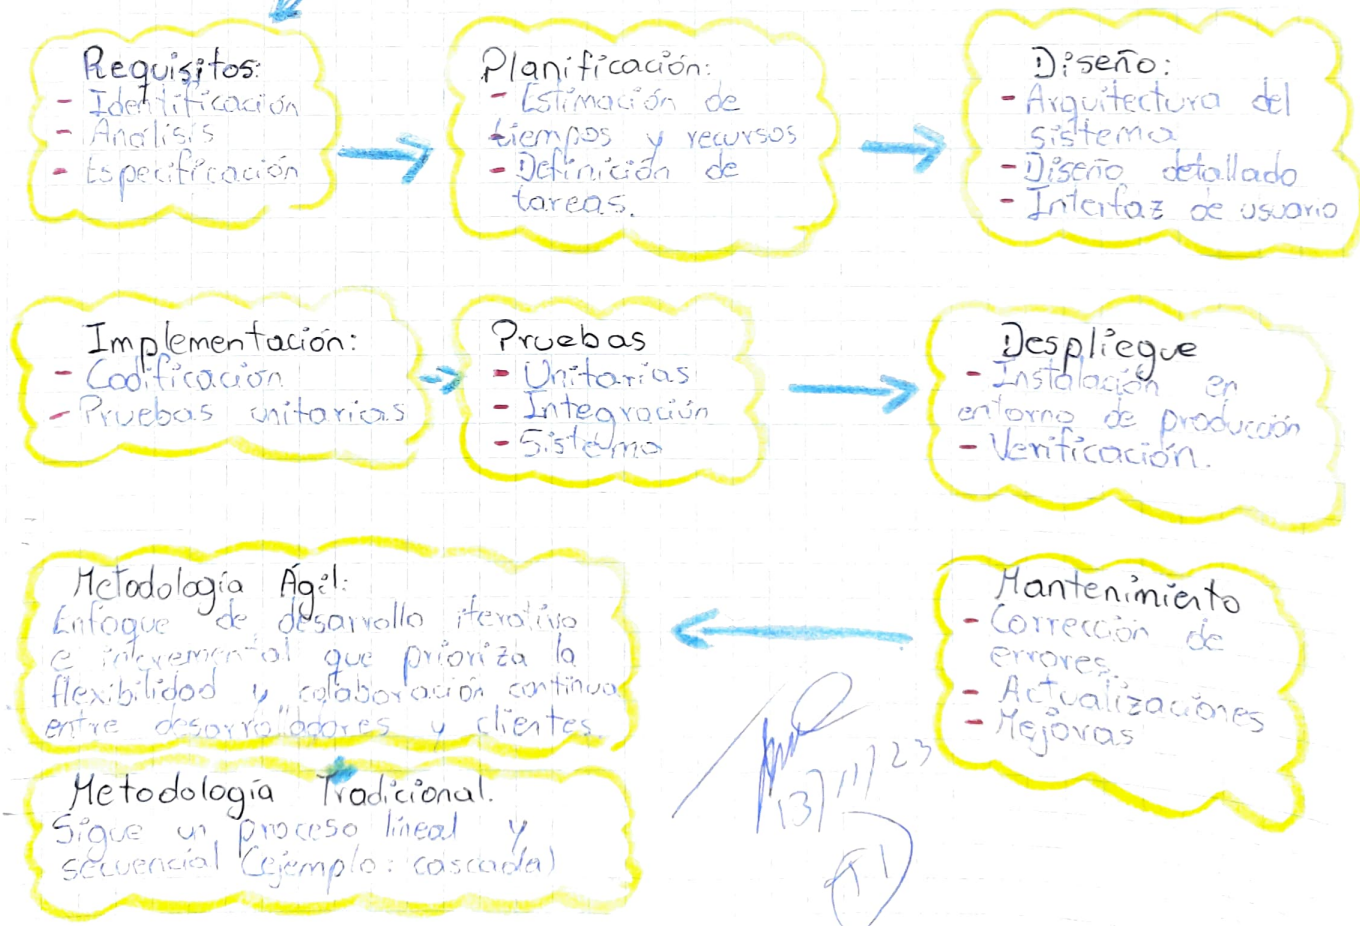 Requisitos:
- Identificación
- Análisis
- Especificación
Planificación:
- Estimación de
tiempos y recursos
- Definición de
tareas.
Diseño:
- Arquitectura del
sistema
- Diseño detallado
- Interfaz de usuario
Implementación:
- Codificación
- Pruebas unitarias
Pruebas
- Unitarias
- Integración
- Sistema
Despliegue
- Instalación en
entorno de producción
- Verificación.
Metodología Ágil:
Enfoque de desarrollo iterativo
e incremental que prioriza la
flexibilidad y colaboración continua
entre desarrolladores y clientes.
Mantenimiento
- Corrección de
errores.
- Actualizaciones
- Mejoras
Metodología Tradicional.
Sigue un proceso lineal y
secuencial (ejemplo: cascada)
13/11/23